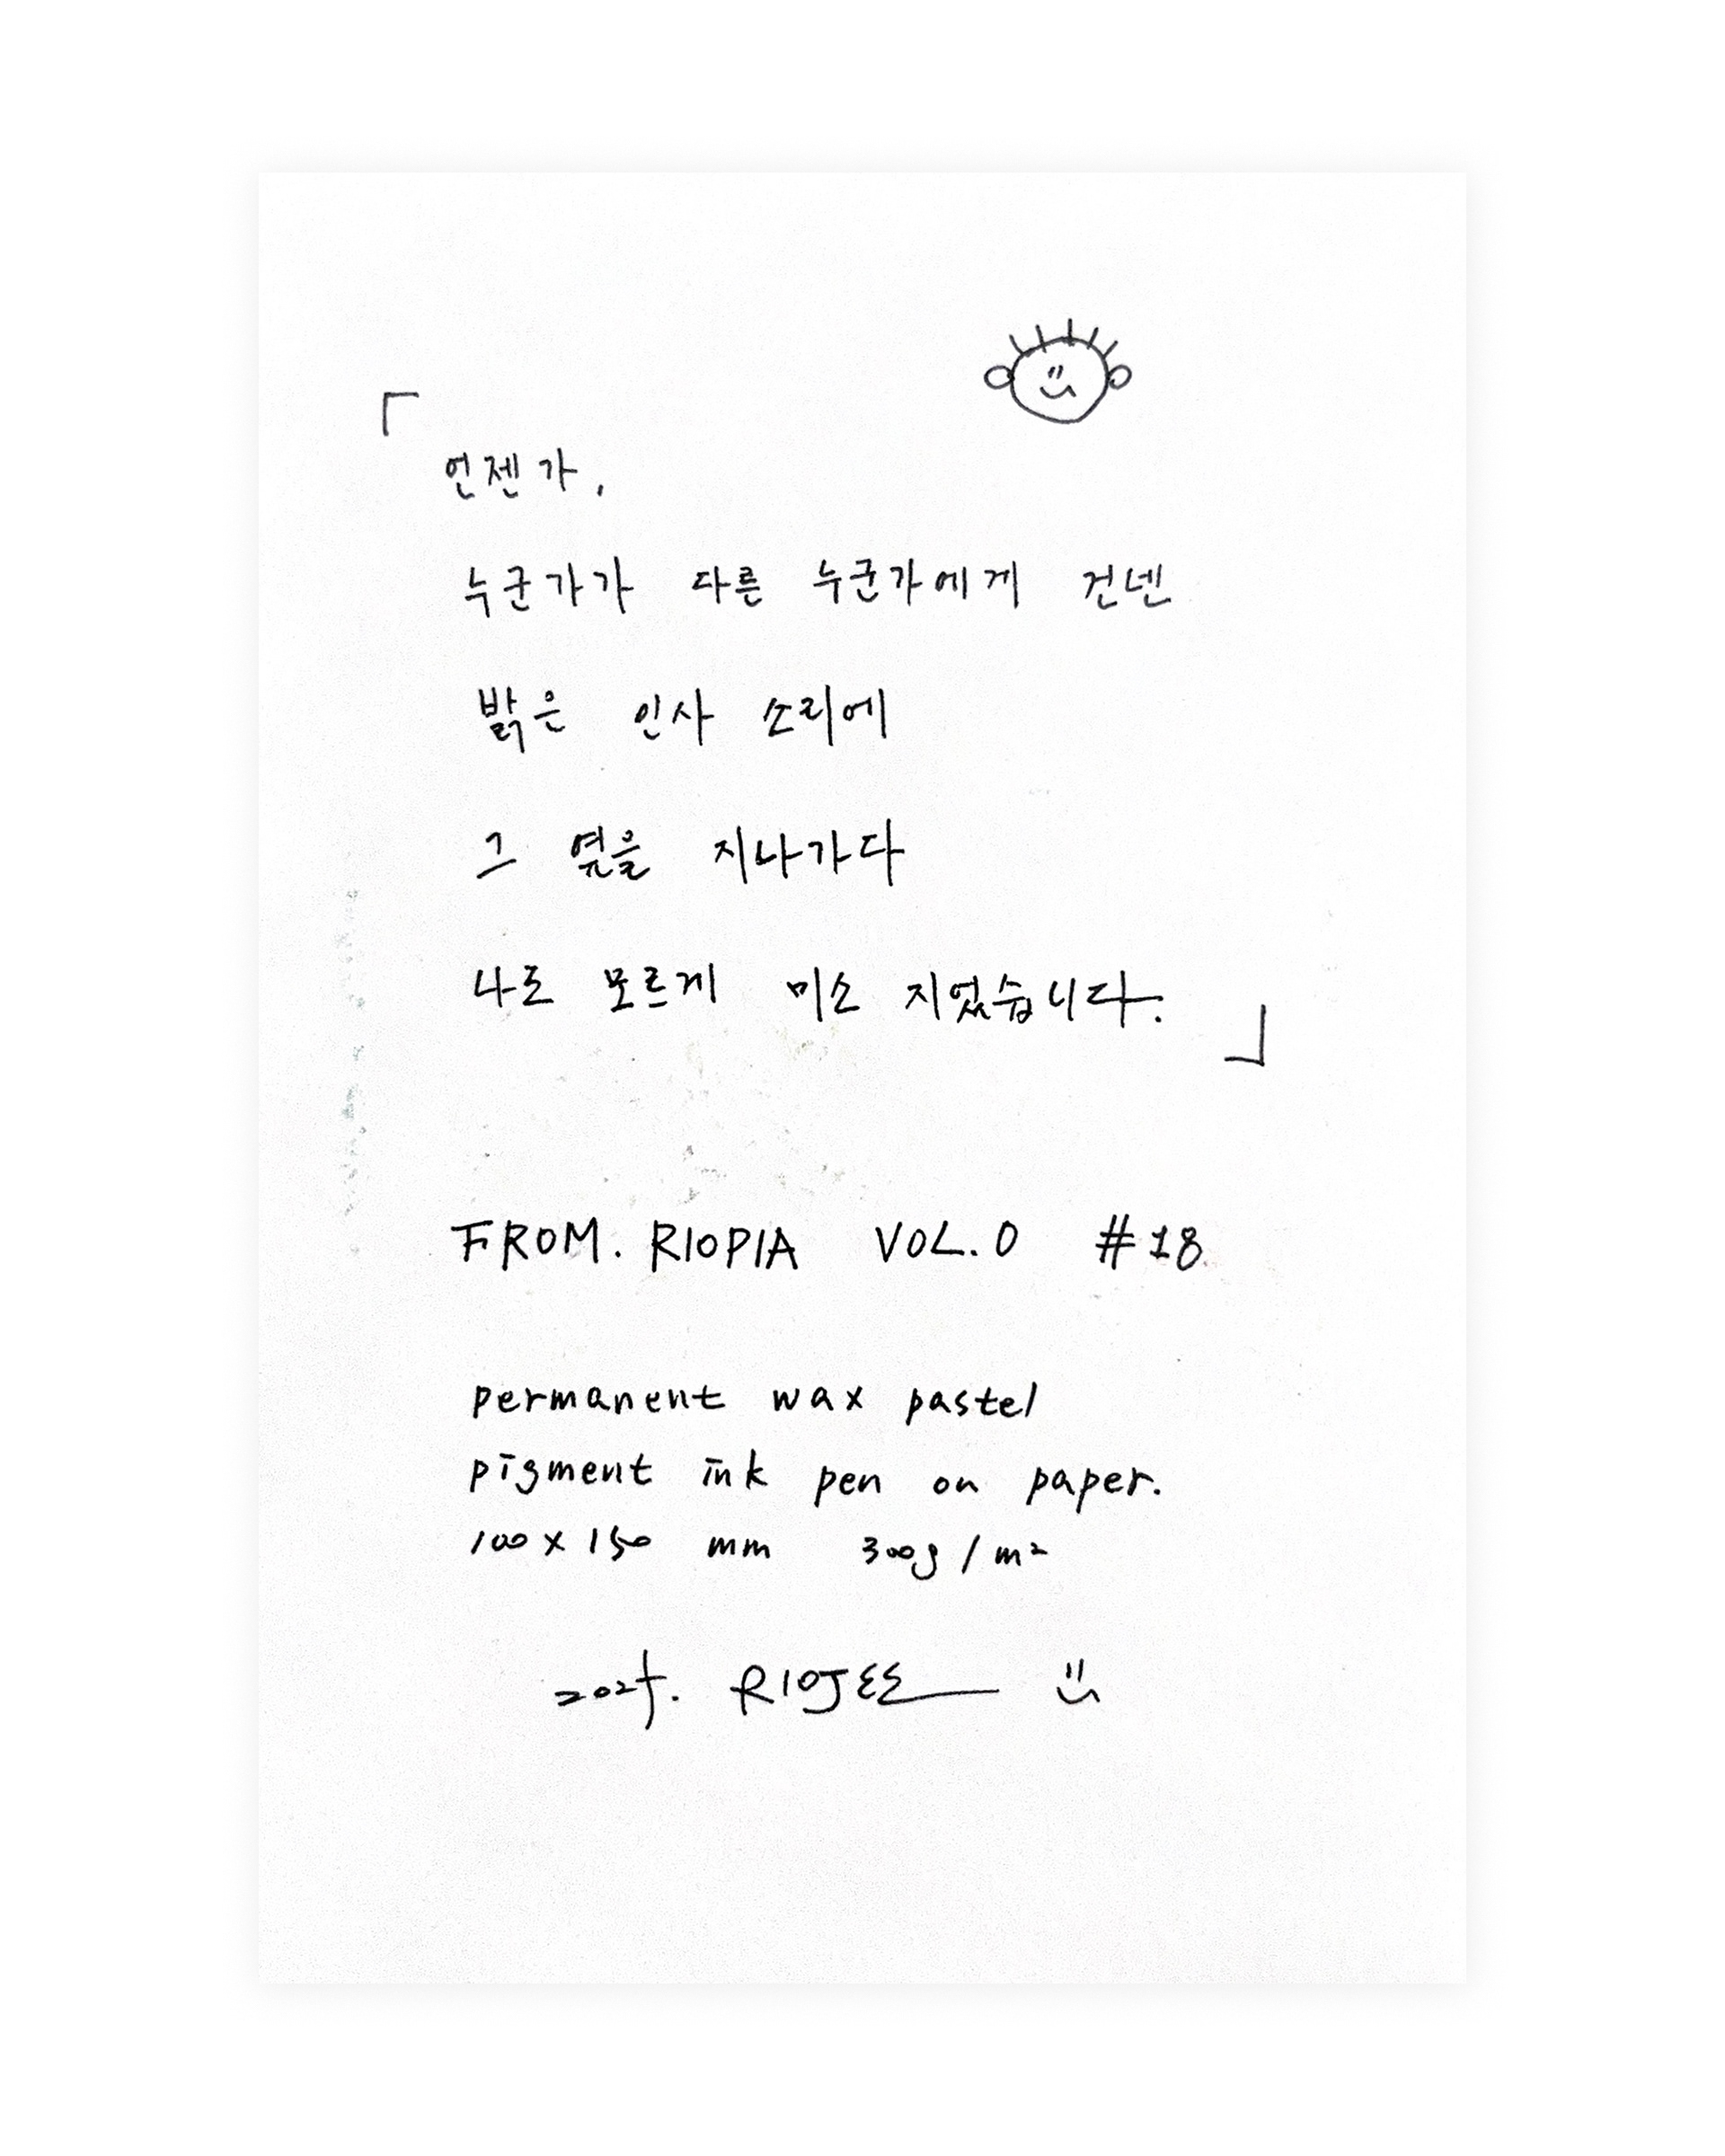 「
언젠가,
누군가가 다른 누군가에게 건넨
밝은 인사 소리에
그 옆을 지나가다
나도 모르게 미소 지었습니다.
」
FROM. RIOPIA VOL.0 #18
permanent wax pastel
pigment ink pen on paper.
100 x 150 mm 300g/m²
RIOJEE